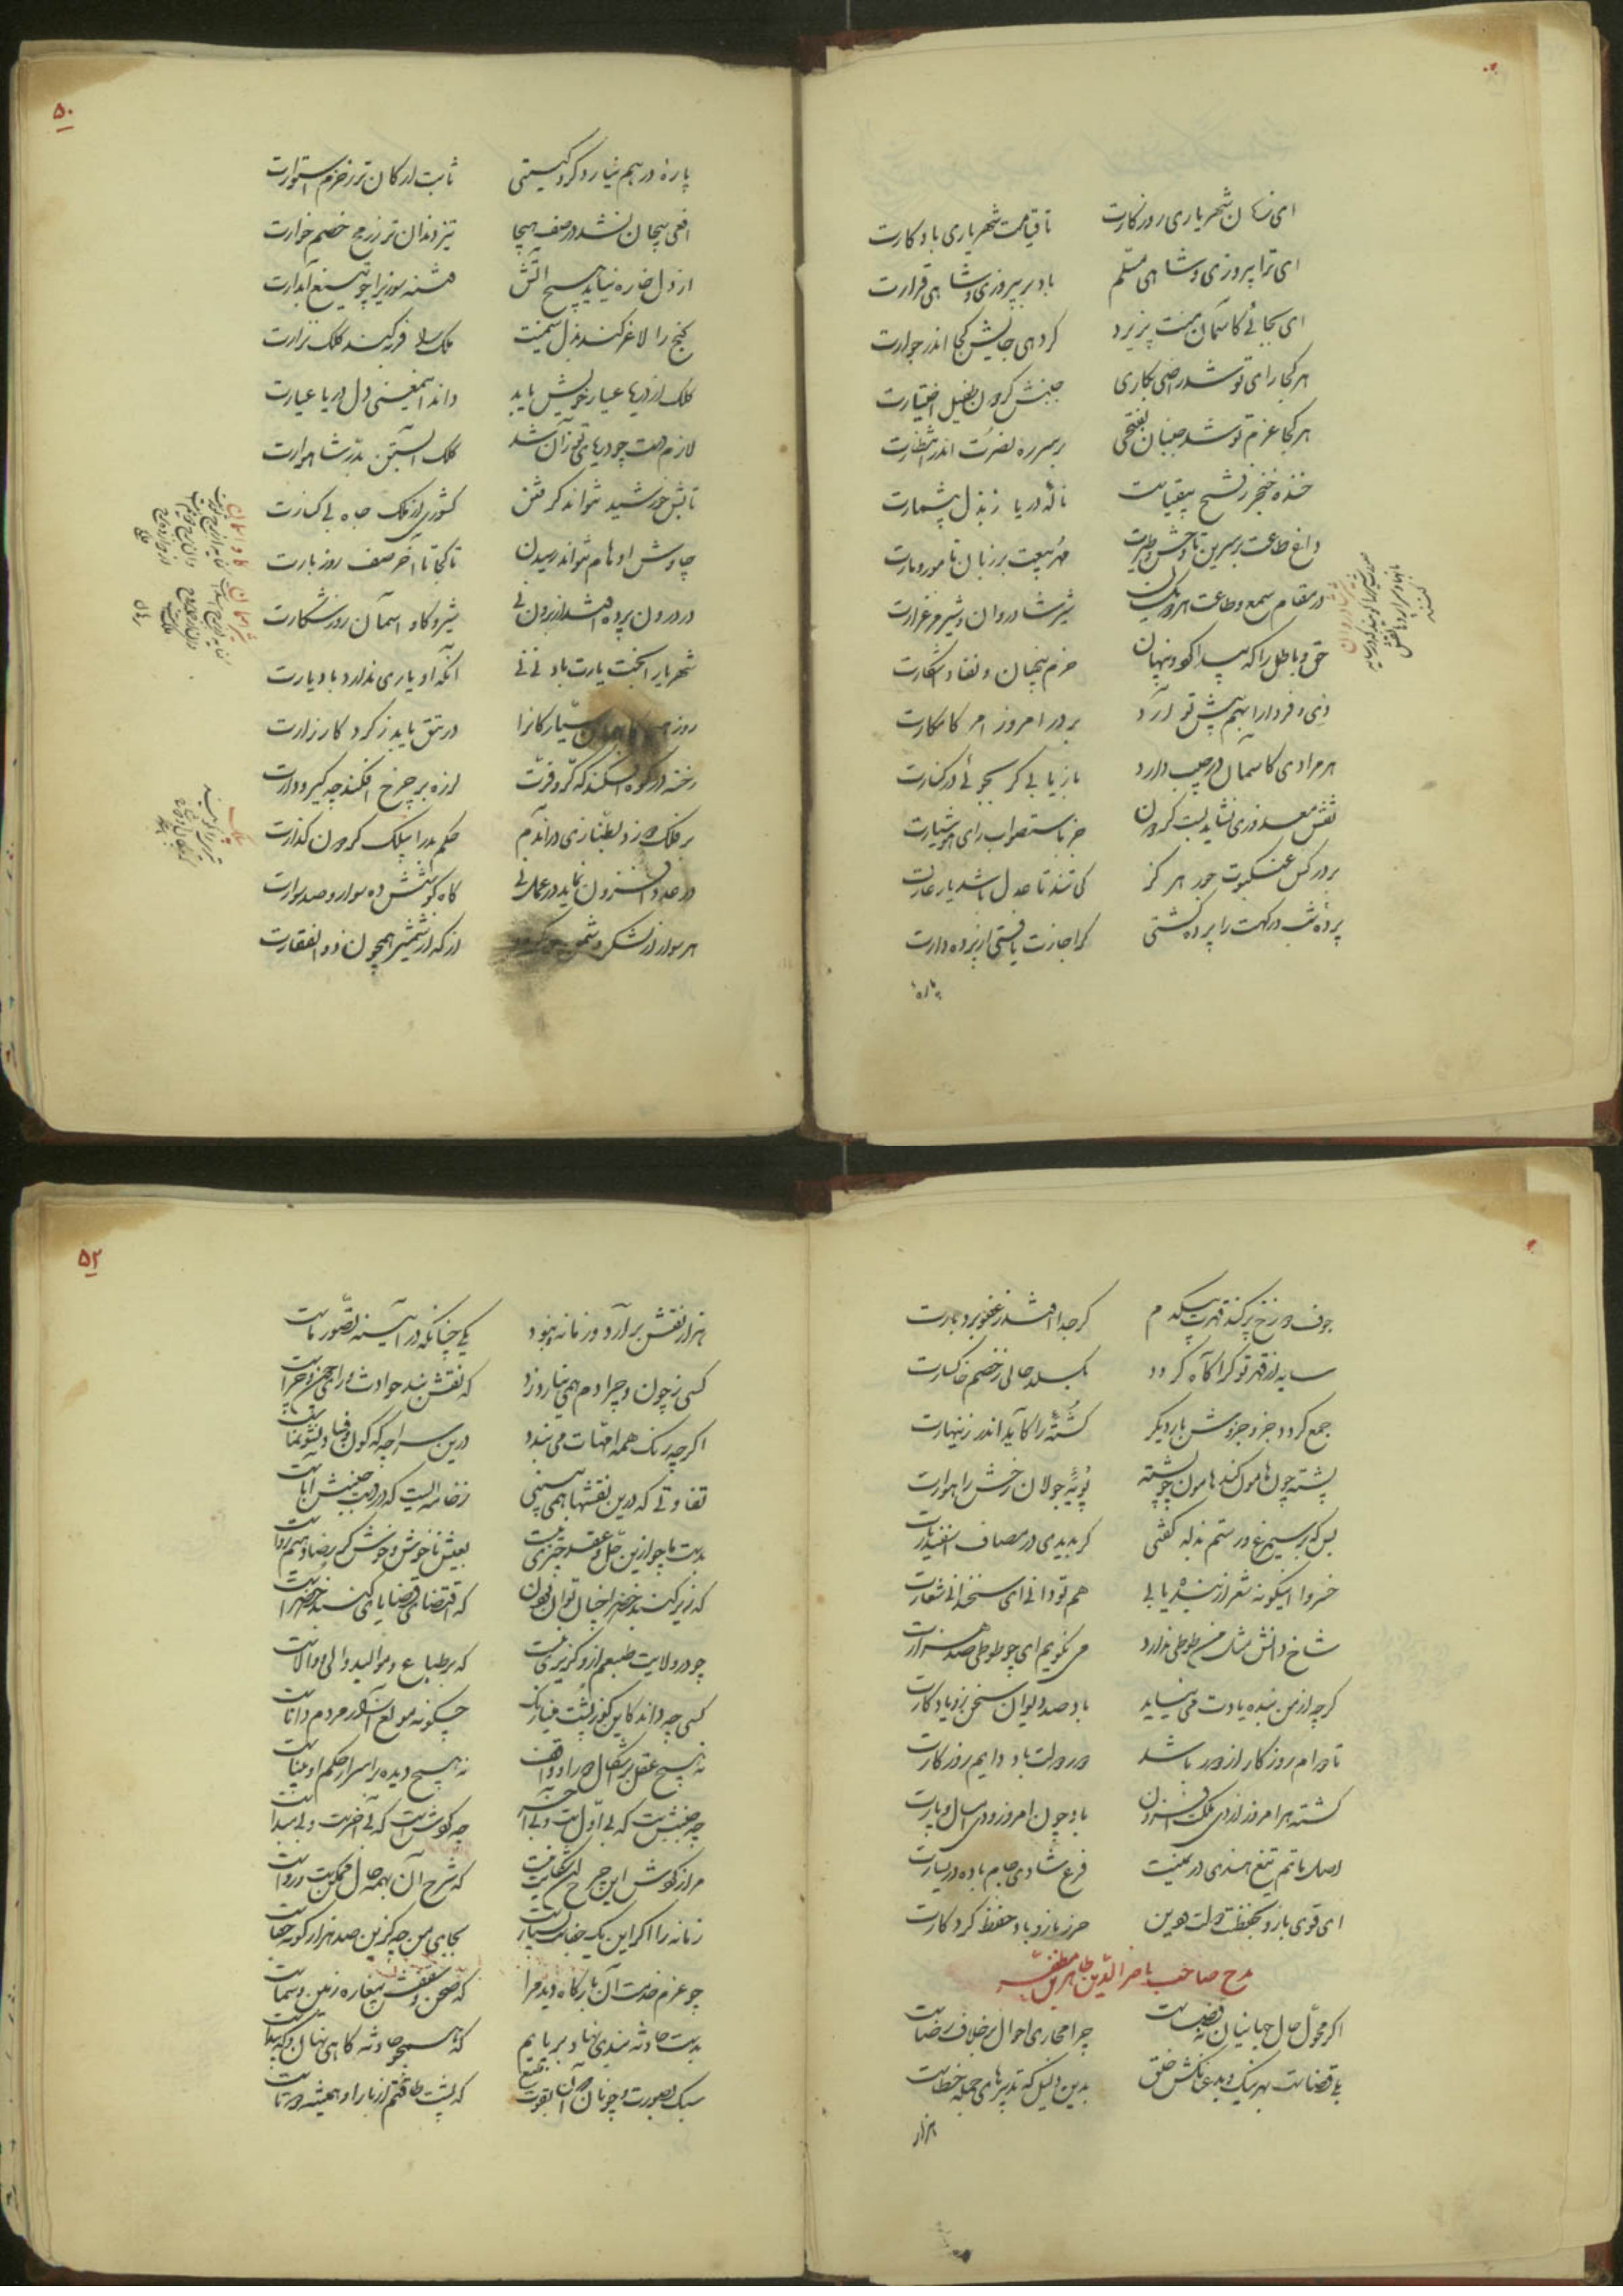 ای نهان شهریاری روزگارت تا قیامت شهریاری باد کارت
ای ترا پیروزی و شاهی مسلم باد بر پیروزی و شاهی قرارت
ای بجائی کاسمان منت پذیرد گر دهی جایش کجا اندر جوارت
هر کجا رای تو شد راضی بکاری جنبش گردون طفیل اختیارت
هر کجا عزم تو شد جنبان بفتحی بر سر ره نصرت اندر انتظارت
خنده خنجر ز فتح بیقیاست ناله دریا ز بذل بیشمارت
داغ طاعت بر سرین تا وحش و طیرت مهر بیعت بر زبان تا مور و مارت
در مقام سمع و طاعت هر دو یکسان شیر شادروان و شیر مرغزارت
حق و باطل را که پیدا کرد و پنهان حزم پنهان و نفاذ آشکارت
دی و فردا را بهم پیش تو آرد بر در امروز امر کامکارت
هر مرادی کاسمان در جیب دارد باز یابی گر بجوئی در کنارت
نقش مصدوری نشاید بست گردون جز باستصواب رای هوشیارت
بر در کس عنکبوت جور هرگز کی تند تا عدل باشد یار غارت
پرده شب درگهت را پرده گشتی گر اجازت یافتی از پرده دارت
پاره
۵۰
پاره در هم نیارد کرد گیتی ثابت ارکان تر ز حزم استوارت
افعی پیچان نشد در صف هیجا تیز دندان تر ز رمح خصم خوارت
از دل خاره نیاید هیچ آتش فتنه سوزی را چو تیغ آبدارت
گنج را لاغر کند بذل سمینت ملک را فربه کند کلک نزارت
کلک از دریا عیار خویش یابد داند اینمعنی دل دریا عیارت
لازم دست چو دریای تو زان شد کلک آبستن بدر شاهوارت
تابش خورشید نتواند گرفتن کشوری از ملک جاه بی کنارت
چاوش اوهام نتواند رسیدن تا کجا تا آخر صف روز بارت
در درون پرده افتد از برون نی شیر و گاو آسمان روز شکارت
شهریارا بخت یارت باد نی نی آنکه او یاری ندارد باد یارت
روز سیارگانرا در تتق یابد ز گرد کارزارت
رخنه در کوه افکند که کر و فرت لرزه بر چرخ افکند چه گیر و دارت
بر فلک دوزد بطنازی در اندم حکم بدرا بیلک گردون گذارت
در عدد افزون نماید در عمل نی گاه کوشش ده سوار و صد سوارت
هر سوار از لشکر دشمن دو گردد از که از شمشیر همچون ذوالفقارت
جوف دوزخ پر کند قهرت بیکدم گر جدا افتد ز عفو بردبارت
سایه از قهر تو گر آگاه گردد بگسلد حالی ز خصم خاکسارت
جمع گردد جزو جزوش بار دیگر کشته را کاید اندر زینهارت
پشته چون هامون کند هامون چو پشته پویه جولان رخش راهوارت
بس که بر سیمرغ و رستم بذله گفتی گر بدیدی در مصاف اسفندیارت
خسروا اینگونه شعر از بنده یابی هم تو دانی ای سخندانی شعارت
شاخ دانش مثل من طوطی ندارد می نگویم ای چو طوطی صد هزارت
گرچه از من بنده یادت می نیاید باد صد دیوان سخن زو یادگارت
تا دوام روزگار از دور باشد دور دولت باد دایم روزگارت
گشته هر امروز از دی ملک افزون باد چون امروز و دی امسال و پارت
اصل ماتم تیغ هندی در یمینت فرع شادی جام باده در یسارت
ای قوی بازو بحفظت دولت و دین حرز بازو باد حفظ کردگارت
مدح صاحب ناصر الدین طاهر بن مظفر
اگر محول حال جهانیان نه قضاست چرا مجاری احوال بر خلاف رضاست
بلی قضاست بهر نیک و بد عنانکش خلق بدین دلیل که تدبیرهای جمله خطاست
هزار
۵۲
هزار نقش برآرد زمانه و نبود یکی چنانکه در آیینه تصور ماست
کسی ز چون و چرا دم همی نیارد زد که نقش بند حوادث ورای چون و چراست
اگرچه رنگ همه امهات می بندد درین سراچه که کون و فساد و نشو و نماست
تفاوتی که درین نقشها همی بینی ز خامه ایست که در دست جنبش آباست
بدست ما چو ازین حل و عقد چیزی نیست بعیش ناخوش و خوش گر رضا دهیم رواست
که زیر گنبد خضرا چنان توان بودن که اقتضای قضایای گنبد خضراست
چو در ولایت طبعیم ازو گزیری نیست که بر طباع و موالید والی والاست
کسی چه داند کاین گوژپشت مینا رنگ چگونه مولع آزار مردم داناست
نه هیچ عقل بر اشکال دور او واقف نه هیچ دیده بر اسرار حکم او بیناست
چه جنبشیست که بی اول است و بی آخر چه گوشیست که بی آخرست و بی مبداست
مرا ز گوش این چرخ آن شکایت نیست که شرح آن بهمه حال ممکنست و رواست
زمانه را اگر این یک جفاست بسیارست بجای من چه کزین صد هزار گونه جفاست
چو عزم خدمت آن بارگاه دید مرا که صحن و سقفش بیغاره زمین و سماست
بدست حادثه بندی نهاد بر پایم که همچو حادثه گاهی نهان و گه پیداست
سبک بصورت و چونان گران بقوت طبع که پشت طاقتم از بار او همیشه دوتاست